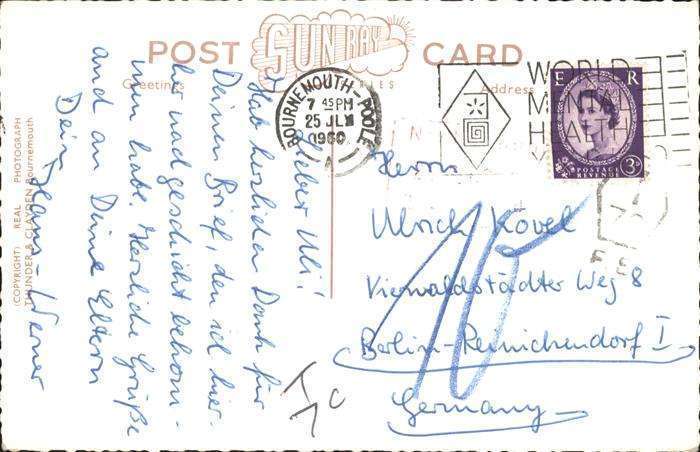 POST SUN RAY CARD
SERIES
Greetings
Address
BOURNEMOUTH-POOLE
7 45 PM
25 JLY
1960
A
WORLD
MENTAL
HEALTH
E R
3D
POSTAGE
REVENUE
Lieber Uli!
Hab herzlichen Dank für
Deinen Brief, den ich hier-
her nachgeschickt bekom-
men habe. Herzliche Grüße
und an Deine Eltern
Dein Hans-Werner
Herrn
Ulrich Kovel
Vierwaldstädter Weg 8
Berlin-Reinickendorf I
Germany
10
T
(COPYRIGHT) REAL PHOTOGRAPH
THUNDER & CLAYDEN Bournemouth